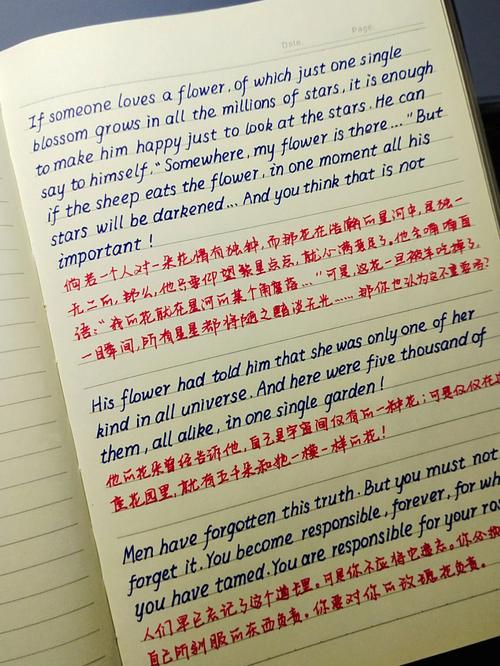 Date. Page.
If someone loves a flower, of which just one single
blossom grows in all the millions of stars, it is enough
to make him happy just to look at the stars. He can
say to himself. "Somewhere, my flower is there..." But
if the sheep eats the flower, in one moment all his
stars will be darkened... And you think that is not
important!
倘若一个人对一朵花情有独钟,而那花在浩瀚的星河中,是独一
无二的,那么,他只要仰望繁星点点,就心满意足了。他会喃喃自
语:"我的花就在星河的某个角落..."可是,这花一旦被羊吃掉了,
一瞬间,所有星星都将随之黯淡无光......那你也认为这不重要吗?
His flower had told him that she was only one of her
kind in all universe. And here were five thousand of
them, all alike, in one single garden!
他的花朵曾经告诉他,自己是宇宙间仅有的一种花;可是仅仅在这
座花园里,就有五千朵和她一模一样的花!
Men have forgotten this truth. But you must not
forget it. You become responsible, forever, for wh
you have tamed. You are responsible for your ro
人们早已忘记了这个道理。可是你不应将它遗忘。你必须
自己所驯服的东西负责。你要对你的玫瑰花负责。